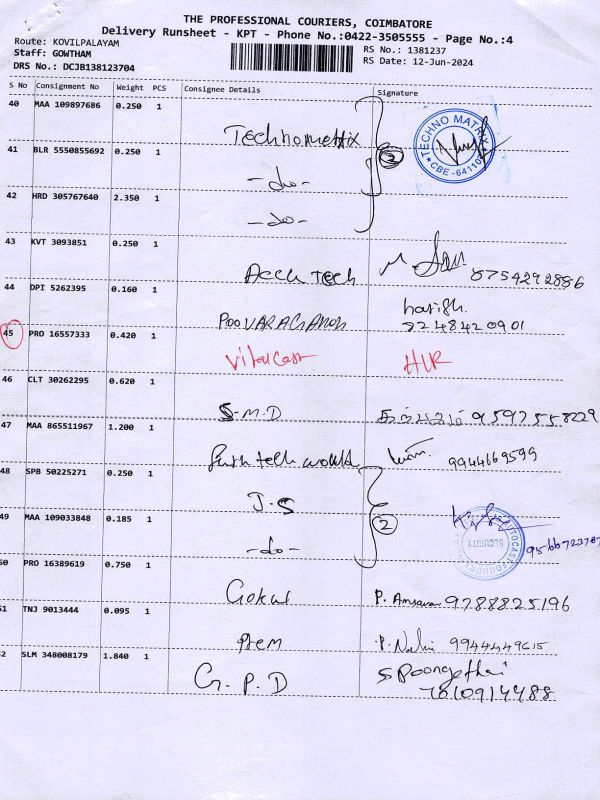 THE PROFESSIONAL COURIERS, COIMBATORE
Delivery Runsheet - KPT - Phone No.:0422-3505555 - Page No.:4
Route: KOVILPALAYAM
RS No.: 1381237
Staff: GOWTHAM
RS Date: 12-Jun-2024
DRS No.: DCJB138123704
S No Consignment No Weight PCS Consignee Details Signature
40 MAA 109897686 0.250 1
Technomatrix
3
TECHNO MATRIX
CBE - 64110
41 BLR 5550855692 0.250 1
-do-
42 HRD 305767640 2.350 1
-do-
43 KVT 3093851 0.250 1
Accu Tech 8754292886
44 DPI 5262395 0.160 1
harish.
POOVARAGHAVAN 8248420901
45 PRO 16557333 0.420 1
HLR
46 CLT 30262295 0.620 1
S.M.D 9597558229
47 MAA 865511967 1.200 1
tech world 9944669599
48 SPB 50225271 0.250 1
J.S
49 MAA 109033848 0.185 1
2
SECURITY
-do-
50 PRO 16389619 0.750 1
Gokul P. 9788825196
51 TNJ 9013444 0.095 1
Prem P. 9944449615
52 SLM 348008179 1.840 1
G.P.D S Poongothai
7810914488